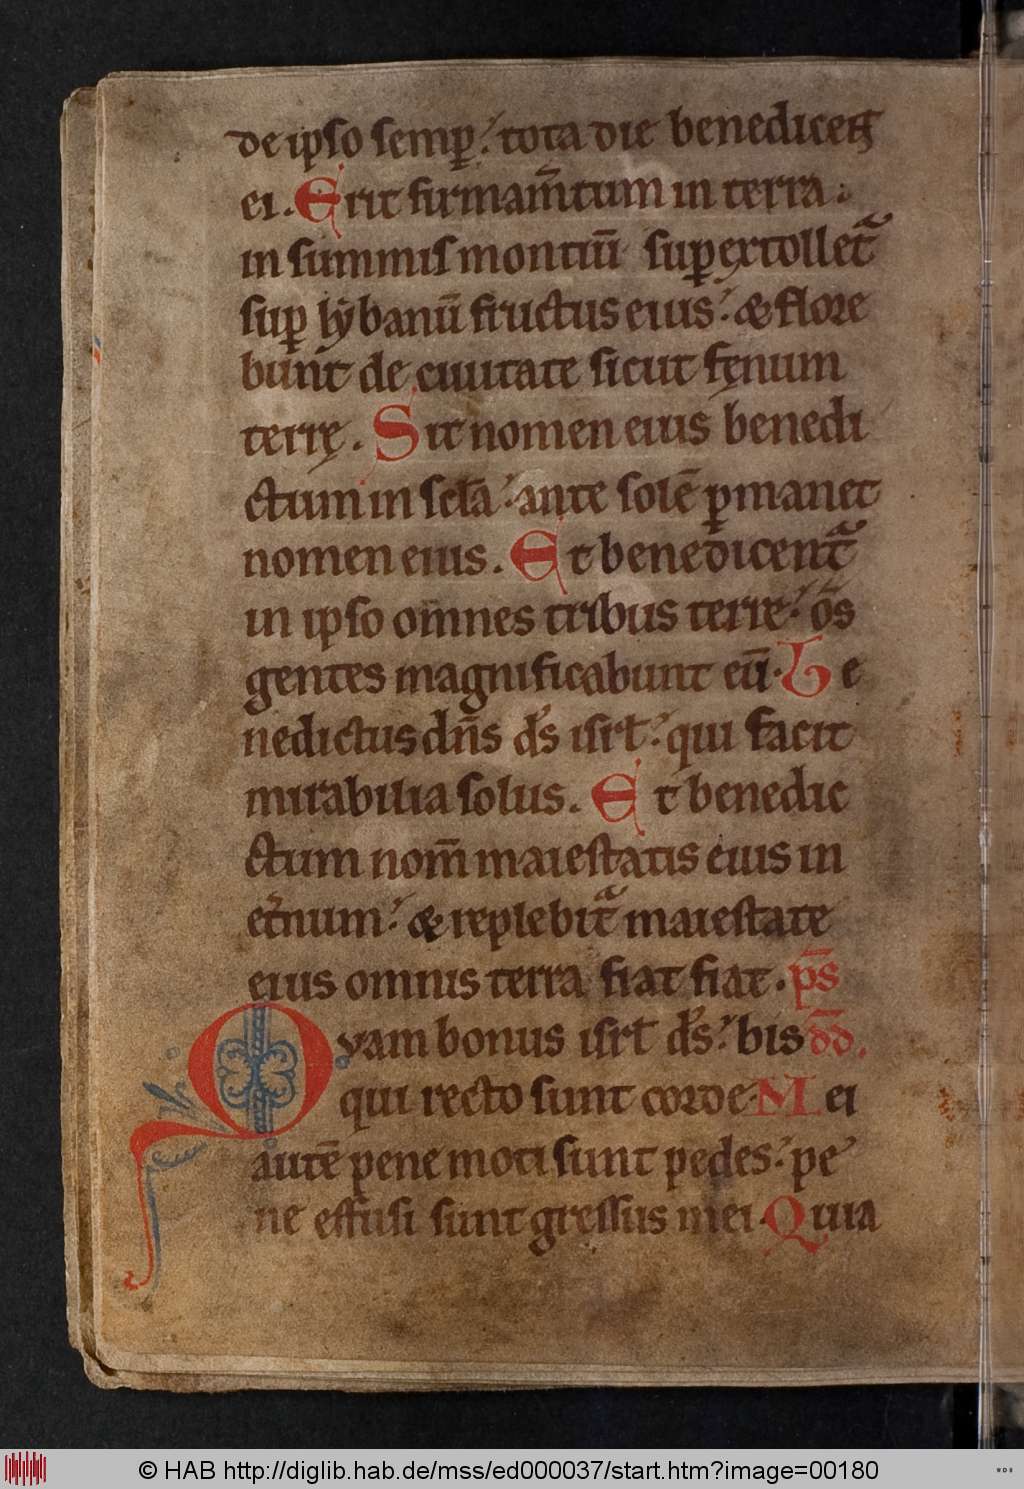 de ipso semꝑ. tota die benedicent
ei. Erit firmam̅tum in terra.
in summis montiu̅ suꝑextollet᷑
suꝑ lybanu̅ fructus eius. & flore
bunt de ciuitate sicut fęnum
terrę. Sit nomen eius benedi
ctum in scl̅a. ante sole̅ ꝑmanet
nomen eius. Et benedicent᷑
in ipso omnes tribus terre. o̅s
gentes magnificabunt eu̅. Be
nedictus dn̅s ds̅ isrl̅. qui facit
mirabilia solus. Et benedic
ctum nom̅ maiestatis eius in
et̅num. & replebit᷑ maiestate
eius omnis terra fiat fiat. ps̅
Qvam bonus isrl̅ ds̅. his dd̅.
qui recto sunt corde. Mei
aute̅ pene moti sunt pedes. pe
ne effusi sunt gressus mei. Quia
© HAB http://diglib.hab.de/mss/ed000037/start.htm?image=00180